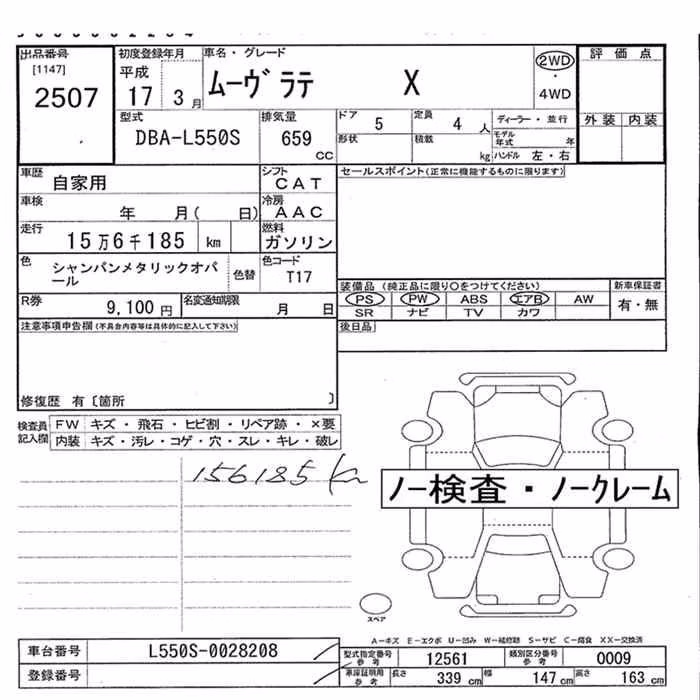 出品番号
[1147]
2507
初度登録年月
平成
17 3月
車名・グレード
ムーヴラテ X
2WD
・
4WD
評価点
外装 内装
型式
DBA-L550S
排気量
659
CC
ドア
5
定員
4人
形状
積載
kg
ディーラー・並行
モデル年式 年
ハンドル 左・右
車歴
自家用
シフト
CAT
車検
年 月( 日)
冷房
AAC
走行
15万6千185 km
燃料
ガソリン
色
シャンパンメタリックオパール
色替
色コード
T17
R券
9,100円
名変通知期限
月 日
セールスポイント(正常に機能するものに限ります)
装備品(純正品に限り○をつけてください)
PS PW ABS エアB AW
SR ナビ TV カワ
新車保証書
有・無
後日品
注意事項申告欄(不具合内容等は具体的に記入して下さい)
修復歴 有〔箇所 〕
検査員記入欄
FW キズ・飛石・ヒビ割・リペア跡・×要
内装 キズ・汚レ・コゲ・穴・スレ・キレ・破レ
156185km
ノー検査・ノークレーム
スペア
A-キズ E-エクボ U-凹み W-補修跡 S-サビ C-腐食 XX-交換済
車台番号 L550S-0028208
登録番号
型式指定番号
参考
12561
類別区分番号
参考
0009
車庫証明用
参考
長さ 339 cm 幅 147 cm 高さ 163 cm